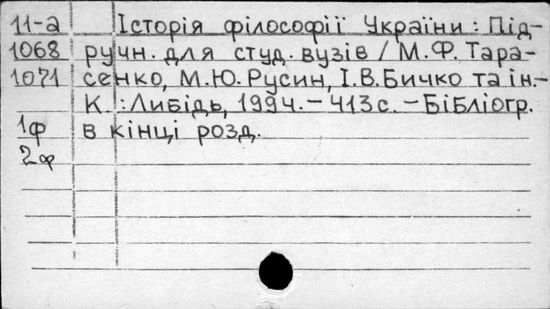 11-а Історія філософії України: Під-
1068 ручн. для студ. вузів / М.Ф. Тара-
1071 сенко, М.Ю. Русин, І.В. Бичко та ін.-
К.: Либідь, 1994. – 413 с. – Бібліогр.
1ф в кінці розд.
2ф